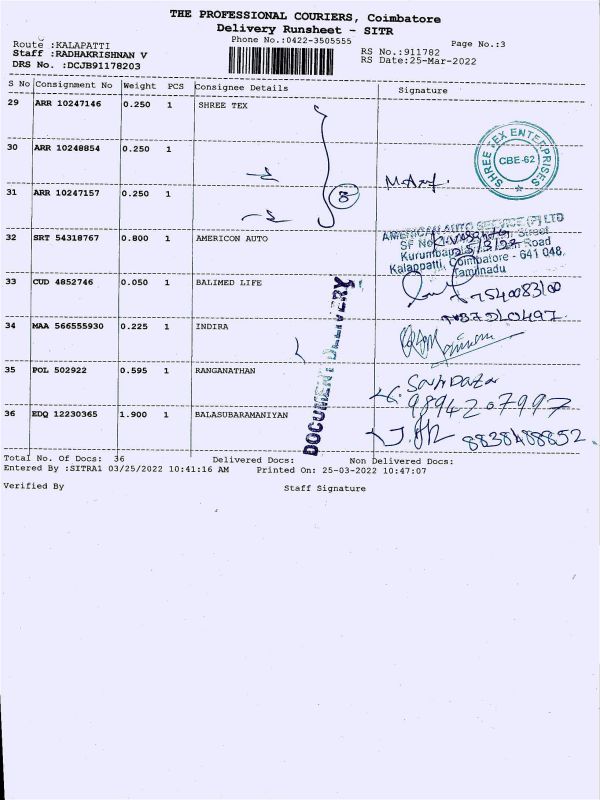 THE PROFESSIONAL COURIERS, Coimbatore
Delivery Runsheet - SITR
Phone No.:0422-3505555
Page No.:3
Route :KALAPATTI
Staff :RADHAKRISHNAN V
DRS No. :DCJB91178203
RS No.:911782
RS Date:25-Mar-2022
S No Consignment No Weight PCS Consignee Details Signature
29 ARR 10247146 0.250 1 SHREE TEX
30 ARR 10248854 0.250 1
SHREE TEX ENTERPRISES
CBE-62
31 ARR 10247157 0.250 1
32 SRT 54318767 0.800 1 AMERICON AUTO
AMERICAN AUTO SERVICE (P) LTD
SF No
Street
Road
Kalappatti, Coimbatore - 641 048,
Tamilnadu
33 CUD 4852746 0.050 1 BALIMED LIFE
34 MAA 566555930 0.225 1 INDIRA
35 POL 502922 0.595 1 RANGANATHAN
9894207997
36 EDQ 12230365 1.900 1 BALASUBARAMANIYAN
8838488852
DOCUMENT DELIVERY
Total No. Of Docs: 36 Delivered Docs: Non Delivered Docs:
Entered By :SITRA1 03/25/2022 10:41:16 AM Printed On: 25-03-2022 10:47:07
Verified By Staff Signature